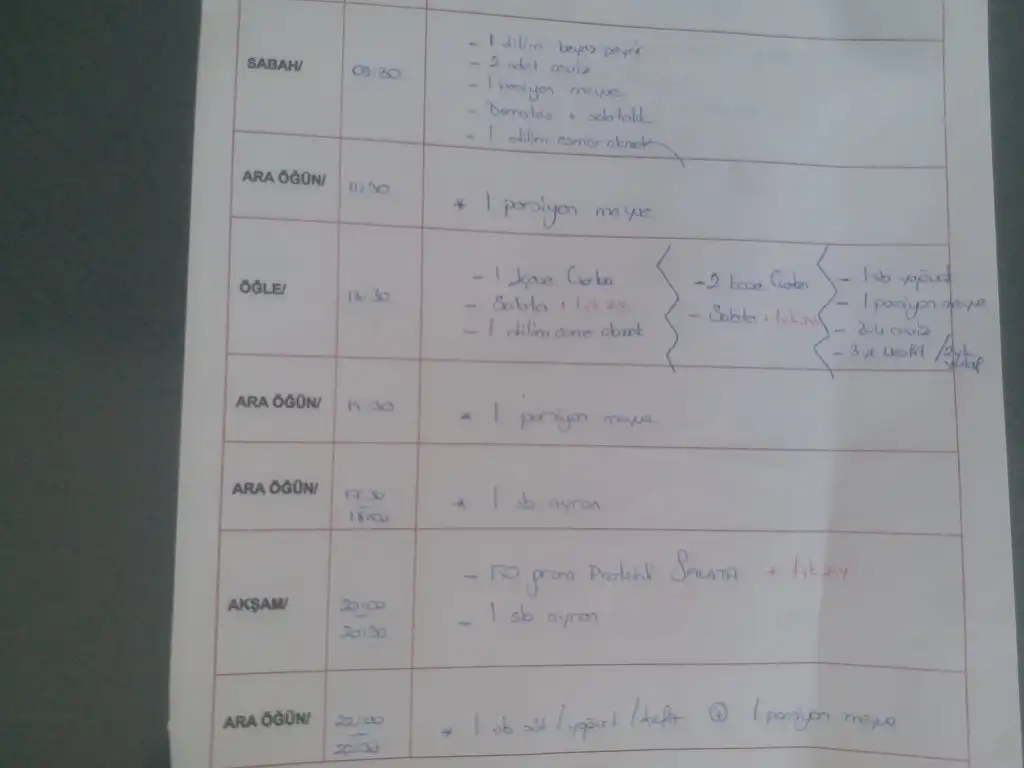 SABAH/
09:30
- 1 dilim beyaz peynir
- 2 adet ceviz
- 1 porsiyon meyve
- Domates + salatalık
- 1 dilim esmer ekmek
ARA ÖĞÜN/
11:30
* 1 porsiyon meyve
ÖĞLE/
13:30
- 1 kase Çorba
- Salata + 1 yk zy
- 1 dilim esmer ekmek
- 2 kase Çorba
- Salata + 1 yk zy
- 1 sb yoğurt
- 1 porsiyon meyve
- 3-4 ceviz
- 3 yk / 3 yk yulaf
ARA ÖĞÜN/
15:30
* 1 porsiyon meyve
ARA ÖĞÜN/
17:30
18:00
* 1 sb ayran
AKŞAM/
20:00
20:30
- 150 gram Proteinli SALATA + 1 yk zy
- 1 sb ayran
ARA ÖĞÜN/
22:00
* 1 sb süt / yoğurt / kefir + 1 porsiyon meyve